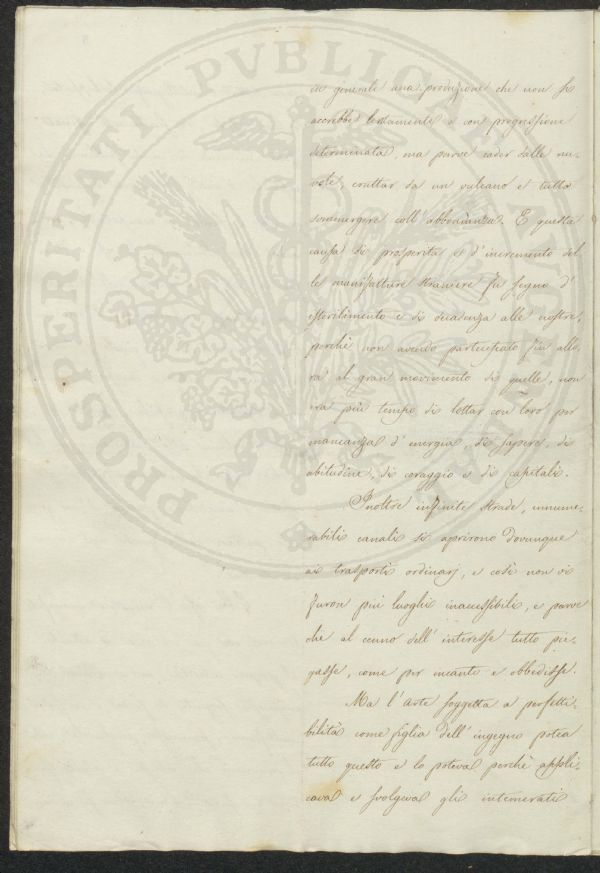 PROSPERITATI PVBLICAE
in generale una produzione che non si
accrebbe lentamente e con progressione
determinata, ma parve cader dalle nu-
vole, eruttar da un vulcano e tutto
sommergere coll'abbondanza. E questa
causa di prosperità e d'incremento del
le manifatture straniere fu segno d'
isterilimento e di decadenza alle nostre,
perchè non avendo partecipato fin allo
ra al gran movimento di quelle, non
era più tempo di lottar con loro per
mancanza d'energia, di sapere, di
abitudine, di coraggio e di capitali.
Inoltre infinite strade, innume-
rabili canali si aprirono dovunque
ai trasporti ordinarj, e così non vi
furon più luoghi inaccessibili, e parve
che al cenno dell'interesse tutto pie-
gasse, come per incanto e obbedisse.
Ma l'Arte soggetta a perfetti-
bilità come figlia dell'ingegno potea
tutto questo e lo poteva perchè appli-
cava e svolgeva gli intemerati